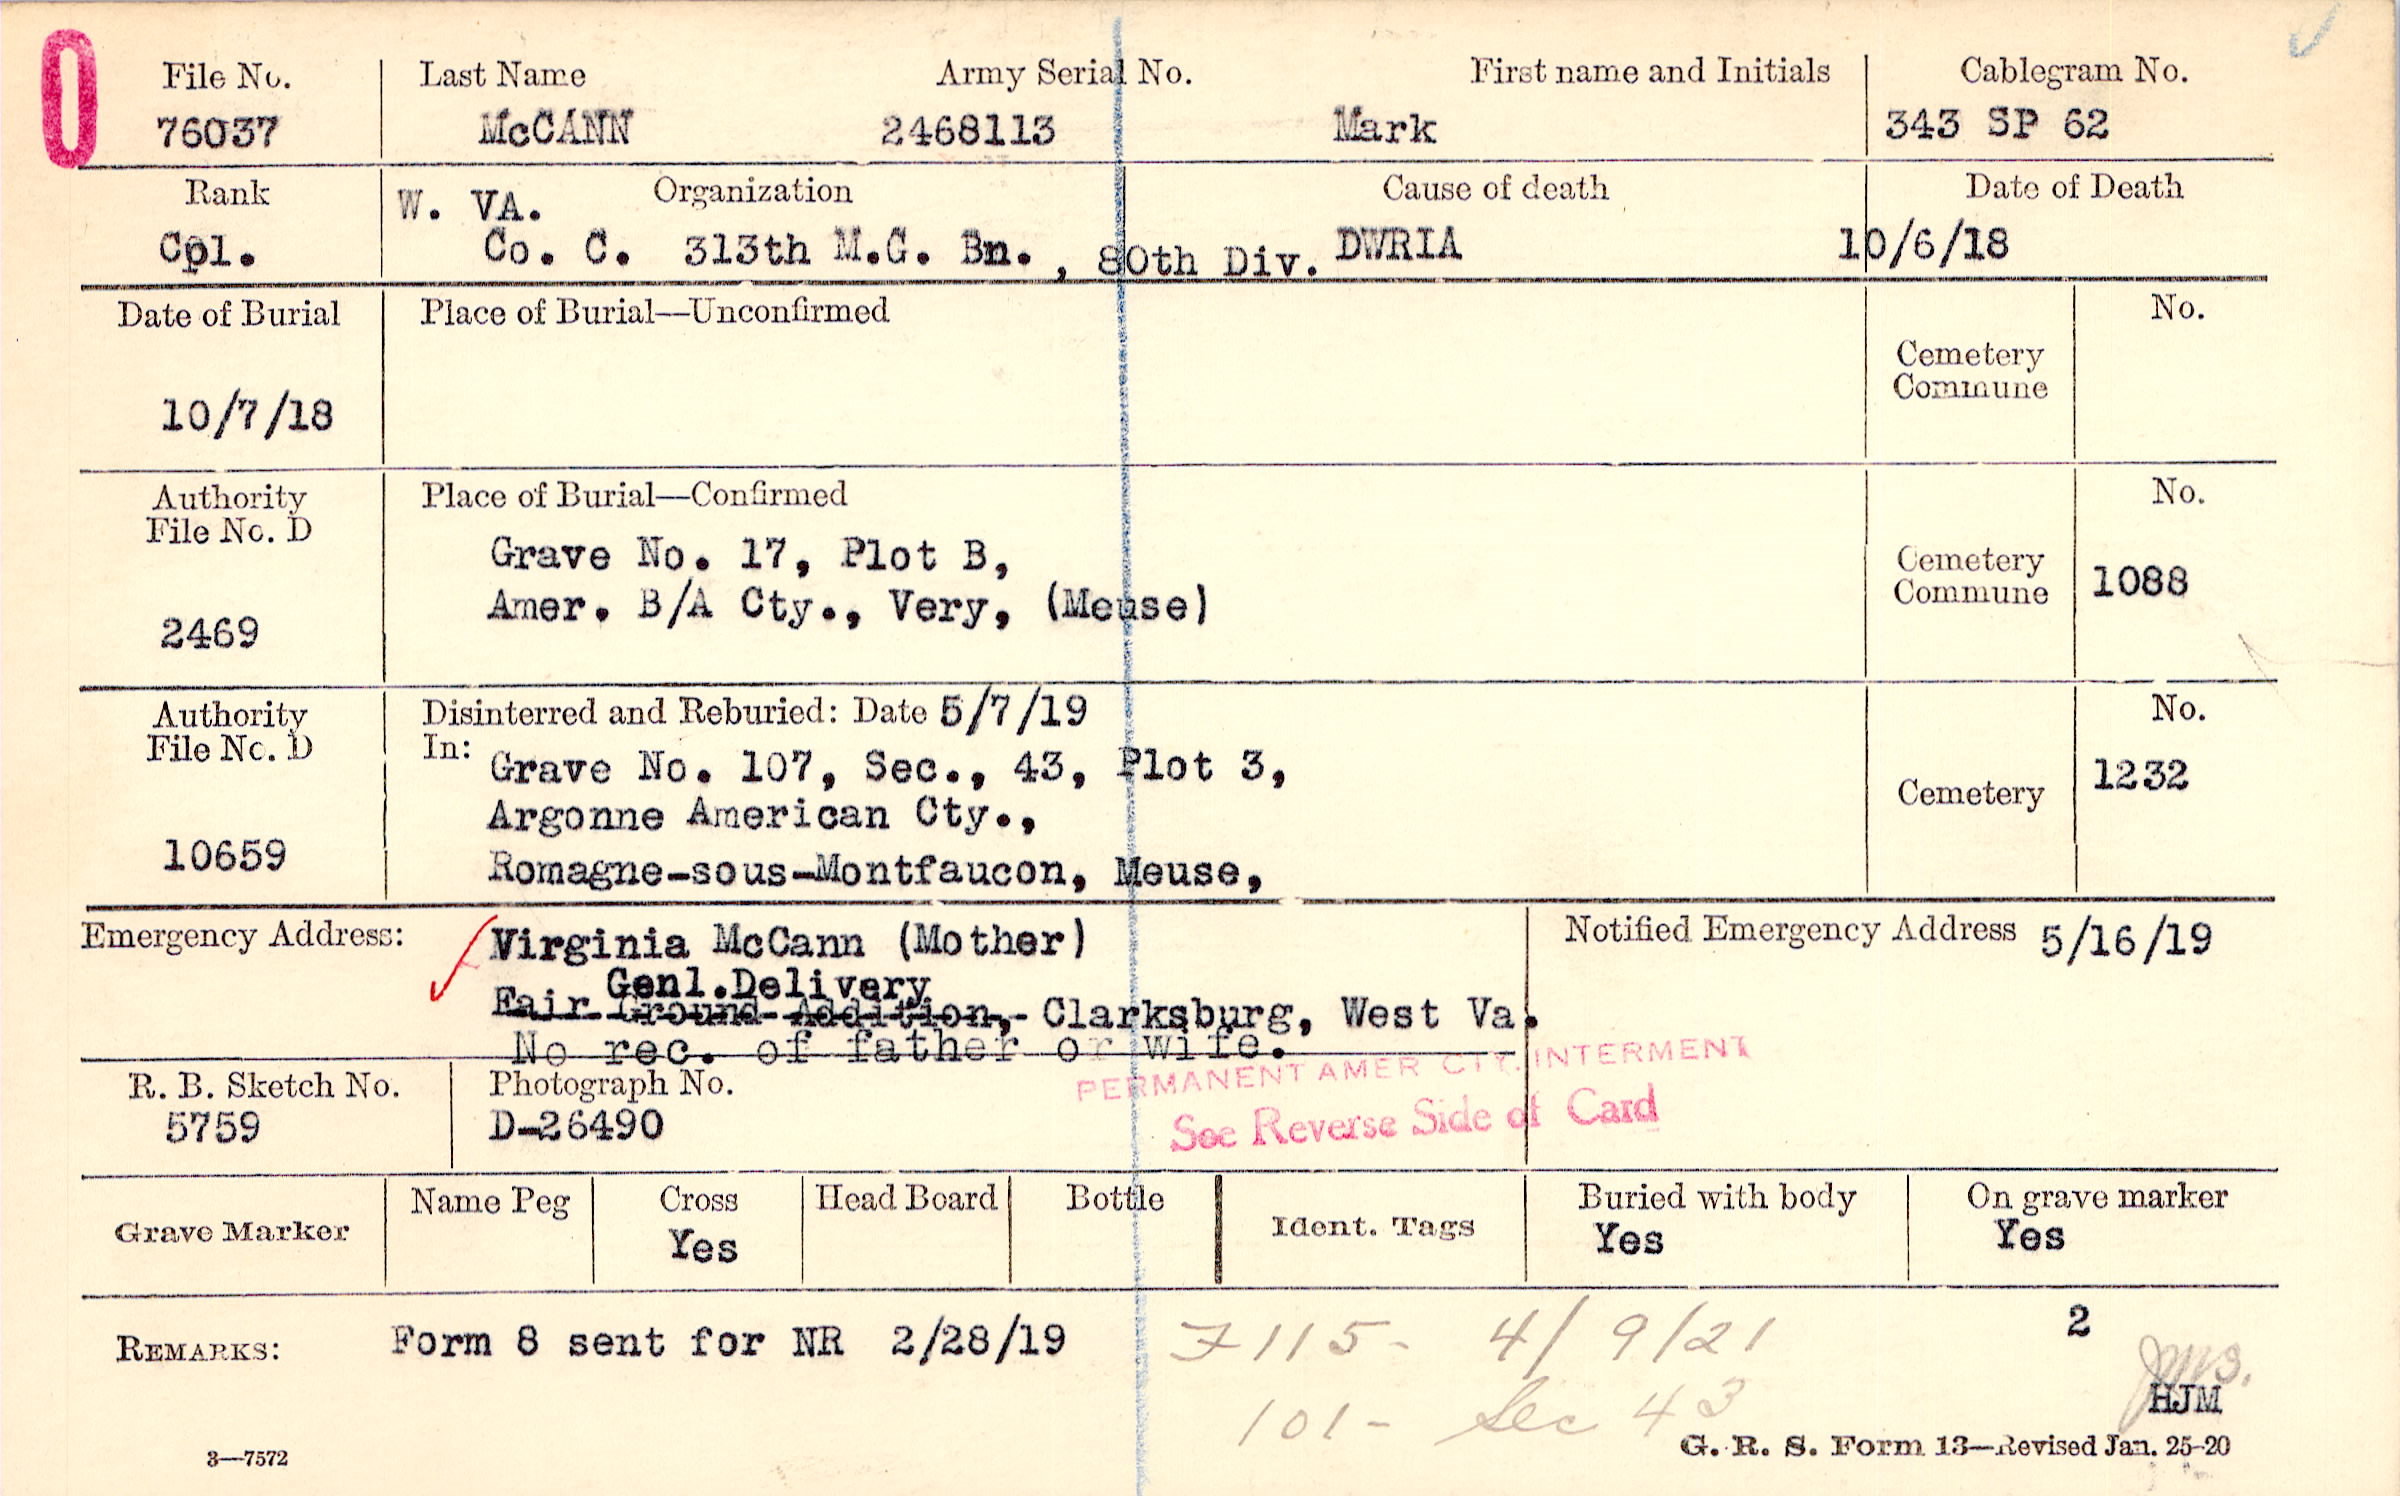 0
File No. Last Name Army Serial No. First name and Initials Cablegram No.
76037 McCANN 2468113 Mark 343 SP 62
Rank Organization Cause of death Date of Death
W. VA.
Cpl. Co. C. 313th M.G. Bn., 80th Div. DWRIA 10/6/18
Date of Burial Place of Burial—Unconfirmed No.
Cemetery
Commune
10/7/18
Authority Place of Burial—Confirmed No.
File No. D
Grave No. 17, Plot B, Cemetery
Amer. B/A Cty., Very, (Meuse) Commune 1088
2469
Authority Disinterred and Reburied: Date 5/7/19 No.
File No. D In:
Grave No. 107, Sec., 43, Plot 3, 1232
Argonne American Cty., Cemetery
10659 Romagne-sous-Montfaucon, Meuse,
Emergency Address: Virginia McCann (Mother) Notified Emergency Address 5/16/19
Genl.Delivery
Fair Ground Addition, Clarksburg, West Va.
No rec. of father or wife.
PERMANENT AMER CTY. INTERMENT
R. B. Sketch No. Photograph No.
5759 D-26490 See Reverse Side of Card
Grave Marker Name Peg Cross Head Board Bottle Ident. Tags Buried with body On grave marker
Yes Yes Yes
REMARKS: Form 8 sent for NR 2/28/19 F115- 4/9/21 2
101- Sec 43
HJM
3—7572 G. R. S. Form 13—Revised Jan. 25-20